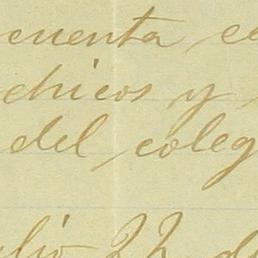 cuenta
chicos y
del coleg
lio 22 d